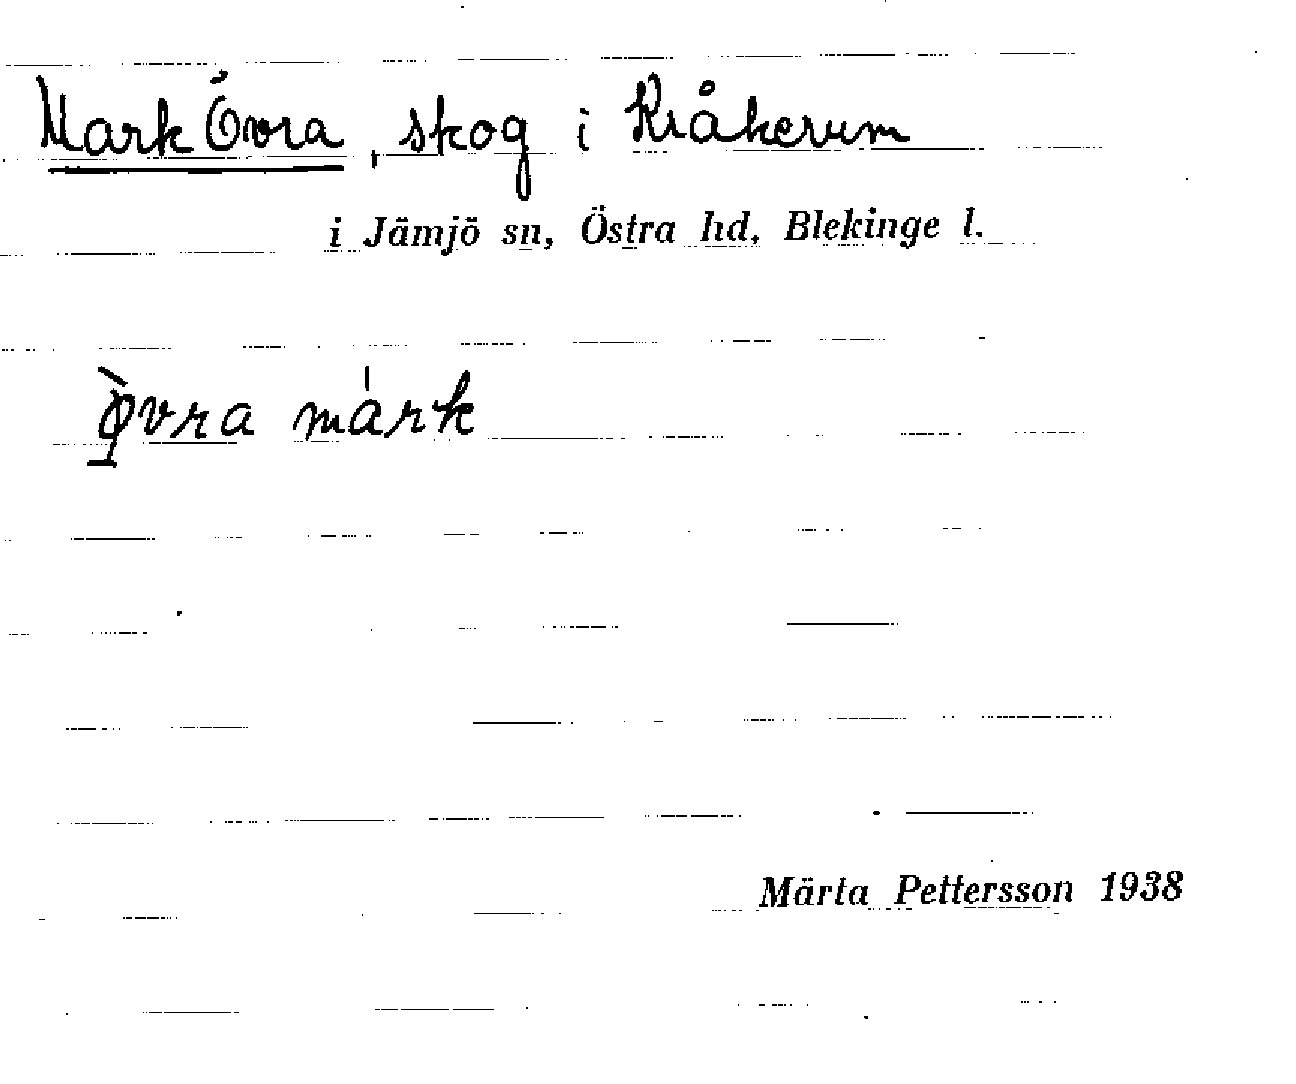 Mark Övra, skog i Kråkerum
i Jämjö sn, Östra hd, Blekinge l.
ø̀vra márk
Märta Pettersson 1938